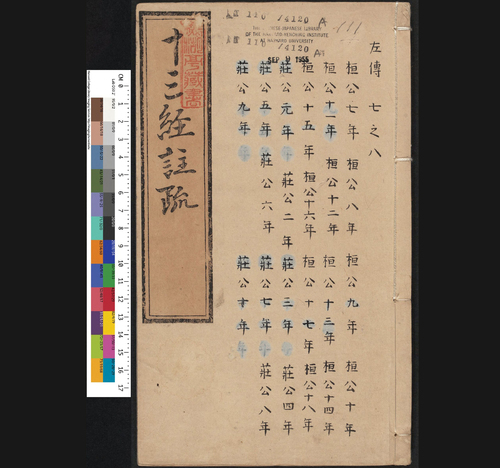 十三經註疏
左傳 七之八
桓公七年 桓公八年 桓公九年 桓公十年
桓公十一年 桓公十二年 桓公十三年 桓公十四年
桓公十五年 桓公十六年 桓公十七年 桓公十八年
莊公元年 莊公二年 莊公三年 莊公四年
莊公五年 莊公六年 莊公七年 莊公八年
莊公九年 莊公十年
14120
OF THE HARVARD-YENCHING INSTITUTE
HARVARD UNIVERSITY
14120
SEP 9 1955
CM 0 1 2 3 4 5 6 7 8 9 10 11 12 13 14 15 16 17